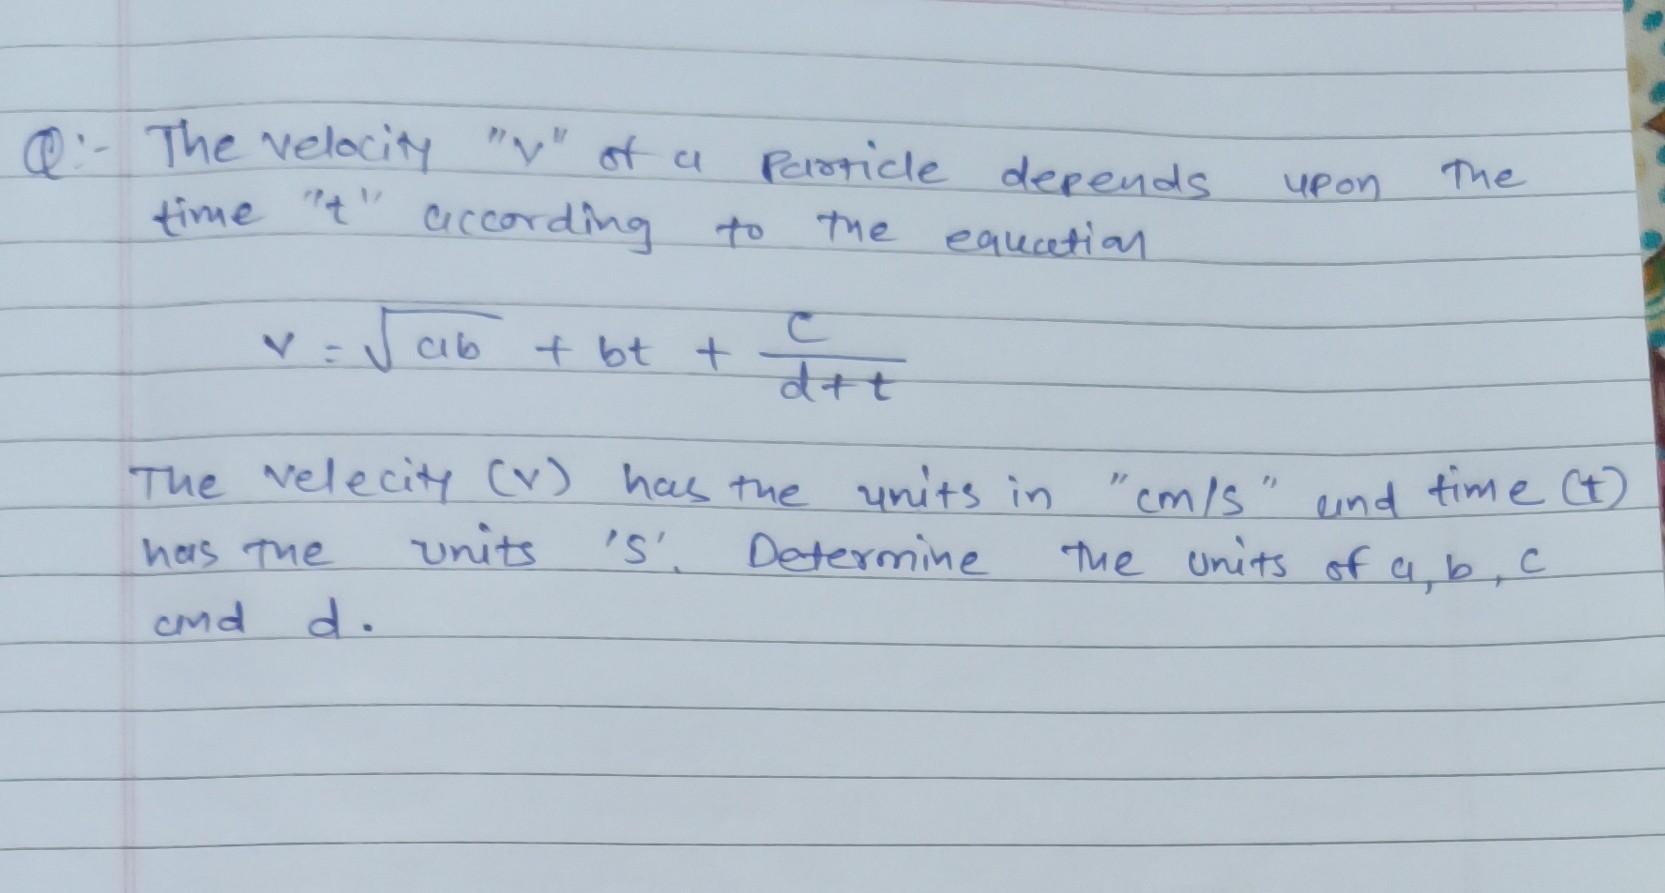 Q:- The velocity "v" of a Particle depends upon the
time "t" according to the equation
v = √ab + bt + c/(d+t)
The velecity (v) has the units in "cm/s" and time (t)
has the units 's'. Determine the units of a, b, c
and d.